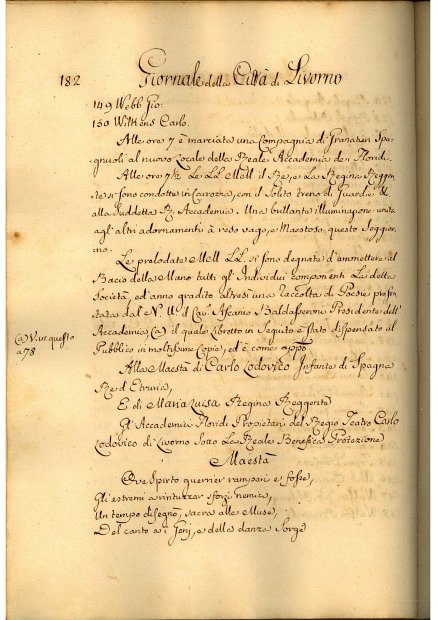 182 Giornale della Città di Livorno
149 Webb Gio:
150 Wilkens Carlo.
Alle ore 7 è marciata una Compagnia di Granatieri Spa=
gnuoli al nuovo locale della Reale Accademia dei Floridi.
Alle ore 7½ Le LL. MM. il Re, e La Regina Reggen
te si sono condotte in Carrozza, con il Solito treno di Guardie &
alla Suddetta R. Accademia. Una brillante illuminazione unita
agl'altri adornamenti à reso vago, e Maestoso questo Soggior=
no.
Le prelodate MM. LL. si sono degnate d'ammettere al
Bacio della Mano tutti gl'Individui componenti La detta
Società, ed'anno gradito altresì una raccolta di Poesie presen
tata dal N. U. il Cav. Ascanio Baldasseroni Presidente dell'
Accademia, (a) il quale libretto in Seguito è stato dispensato al
Pubblico in moltissime Copie, ed è come appo
(a) V. in questo
a 78
Alla Maestà di Carlo Lodovico Infante di Spagna
Re d'Etruria,
E di Maria Luisa Regina Reggente
Gl'Accademici Floridi Propietari del Regio Teatro Carlo
Lodovico di Livorno Sotto La Reale Benefica Protezione
Maestà
Ove Spirto guerrier rampari e fosse,
Gli estremi a rintuzzar sforzi nemici,
Un tempo disegnò, sacra alle Muse,
Del canto a i Genj, e della danza Sorge